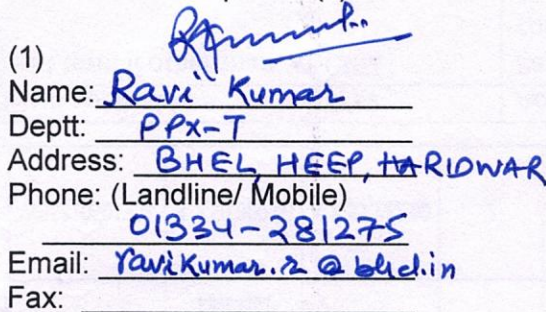 (1)
Name: Ravi Kumar
Deptt: PPX-T
Address: BHEL, HEEP, HARIDWAR
Phone: (Landline/ Mobile)
01334-281275
Email: ravikumar.r@bhel.in
Fax: